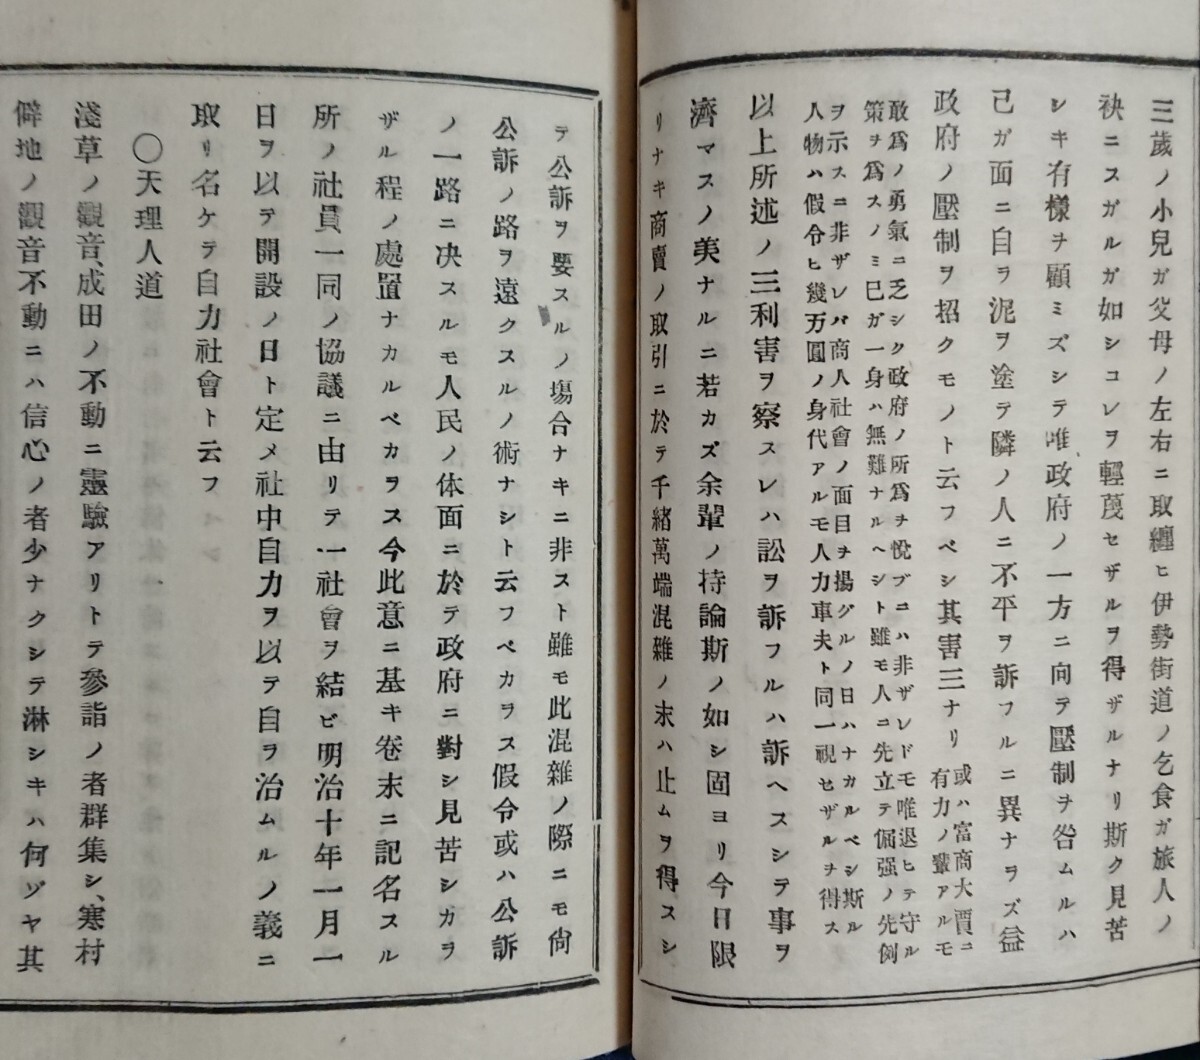 三歲ノ小兒ガ父母ノ左右ニ取纏ヒ伊勢街道ノ乞食ガ旅人ノ
袂ニスガルガ如シコレヲ輕蔑セザルヲ得ザルナリ斯ク見苦
シキ有樣ヲ顧ミズシテ唯政府ノ一方ニ向テ壓制ヲ咎ムルハ
己ガ面ニ自ラ泥ヲ塗テ隣ノ人ニ不平ヲ訴フルニ異ナラズ益
政府ノ壓制ヲ招クモノト云フベシ其害三ナリ
或ハ富商大賈ニ
有力ノ輩アルモ
敢爲ノ勇氣ニ乏シク政府ノ所爲ヲ悅ブニハ非ザレドモ唯退ヒテ守ル
策ヲ爲スノミ已ガ一身ハ無難ナルヘシト雖モ人ニ先立テ倔强ノ先例
ヲ示スニ非ザレバ商人社會ノ面目ヲ揚グルノ日ハナカルベシ斯ル
人物ハ假令ヒ幾万圓ノ身代アルモ人力車夫ト同一視セザルヲ得ス
以上所述ノ三利害ヲ察スレハ訟ヲ訴フルハ訴ヘスシテ事ヲ
濟マスノ美ナルニ若カズ余輩ノ持論斯ノ如シ固ヨリ今日限
リナキ商賣ノ取引ニ於テ千緖萬端混雜ノ末ハ止ムヲ得スシ
テ公訴ヲ要スルノ塲合ナキニ非スト雖モ此混雜ノ際ニモ尙
公訴ノ路ヲ遠クスルノ術ナシト云フベカラス假令或ハ公訴
ノ一路ニ决スルモ人民ノ体面ニ於テ政府ニ對シ見苦シカラ
ザル程ノ處置ナカルベカラス今此意ニ基キ卷末ニ記名スル
所ノ社員一同ノ協議ニ由リテ一社會ヲ結ビ明治十年一月一
日ヲ以テ開設ノ日ト定メ社中自力ヲ以テ自ラ治ムルノ義ニ
取リ名ケテ自力社會ト云フ
〇天理人道
淺草ノ觀音、成田ノ不動ニ靈驗アリトテ參詣ノ者群集シ、寒村
僻地ノ觀音不動ニハ信心ノ者少ナクシテ淋シキハ何ゾヤ其